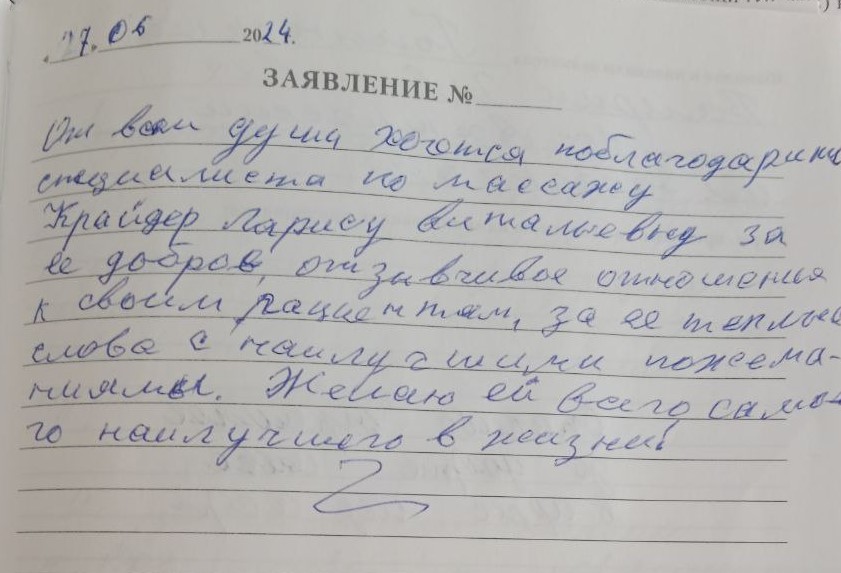 27.06 2024.
ЗАЯВЛЕНИЕ №
От всей души хочется поблагодарить
специалиста по массажу
Крайдер Ларису Витальевну за
ее доброе, отзывчивое отношение
к своим пациентам, за ее теплые
слова с наилучшими пожела-
ниями. Желаю ей всего само-
го наилучшего в жизни!